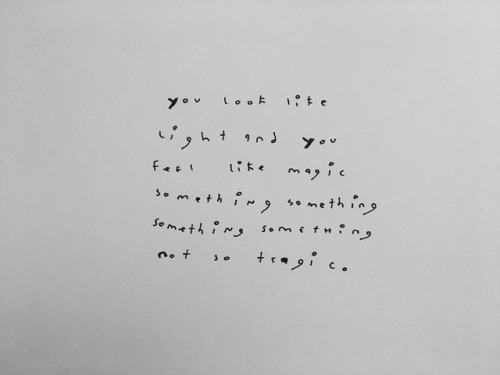 you look like
light and you
feel like magic
something something
something something
not so tragic.